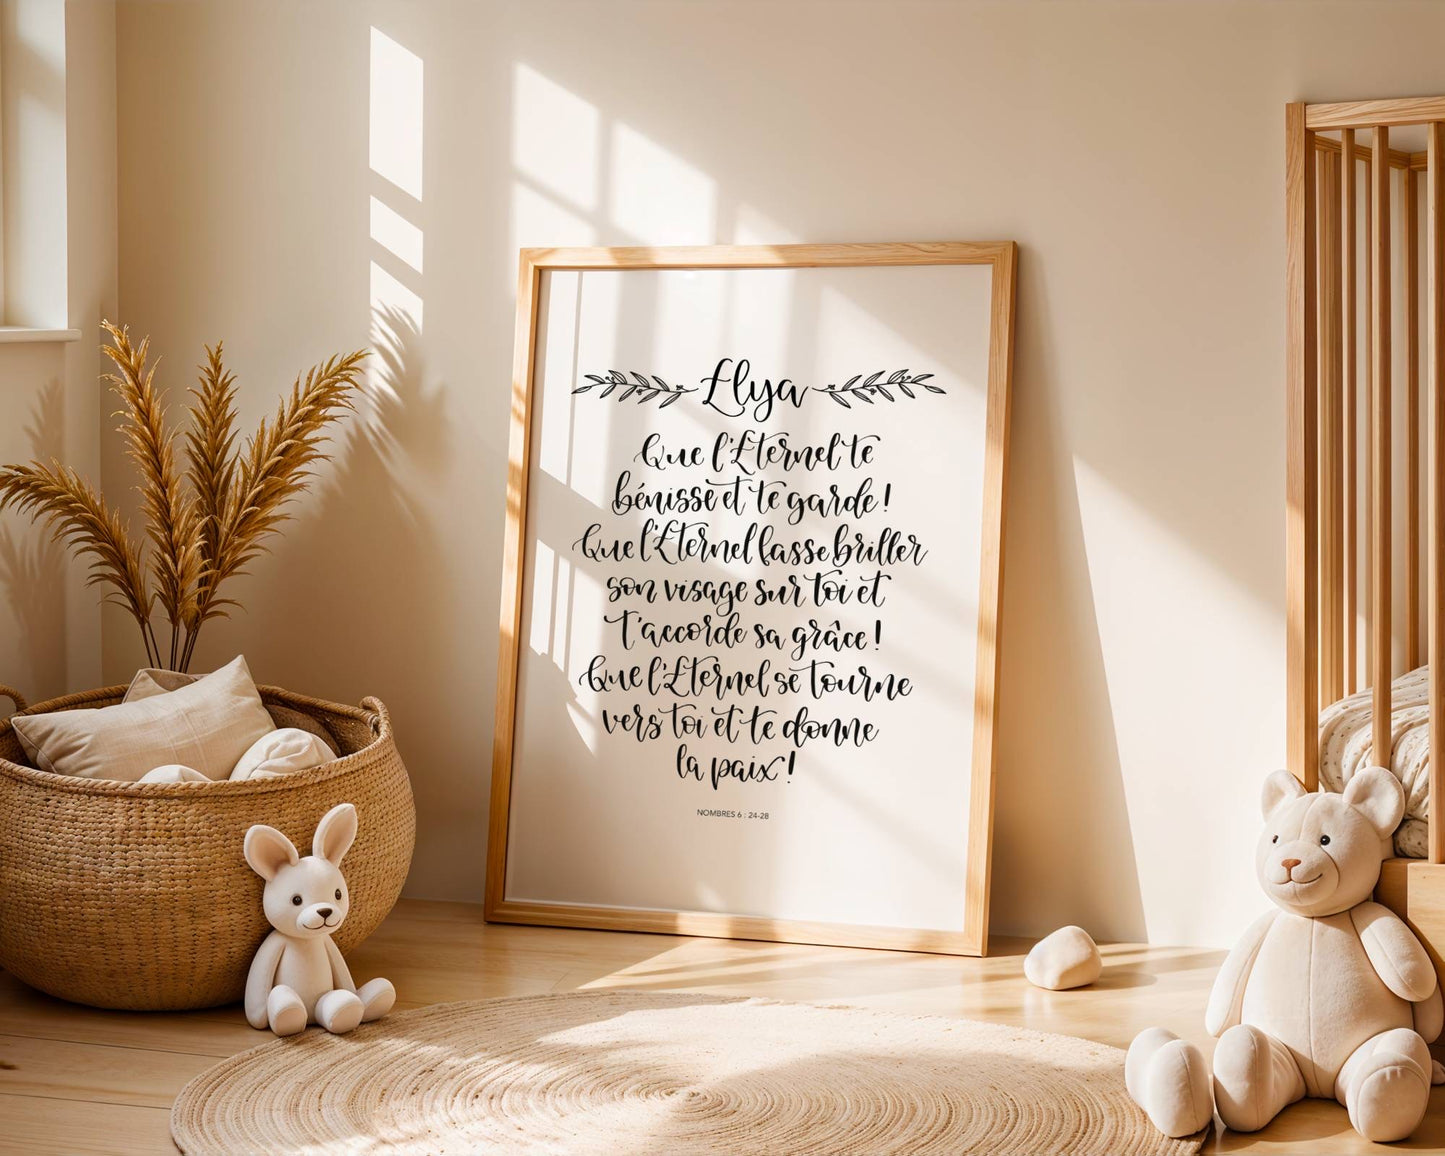 Elya
Que l'Éternel te
bénisse et te garde !
Que l'Éternel fasse briller
son visage sur toi et
t'accorde sa grâce !
Que l'Éternel se tourne
vers toi et te donne
la paix !
NOMBRES 6 : 24-28